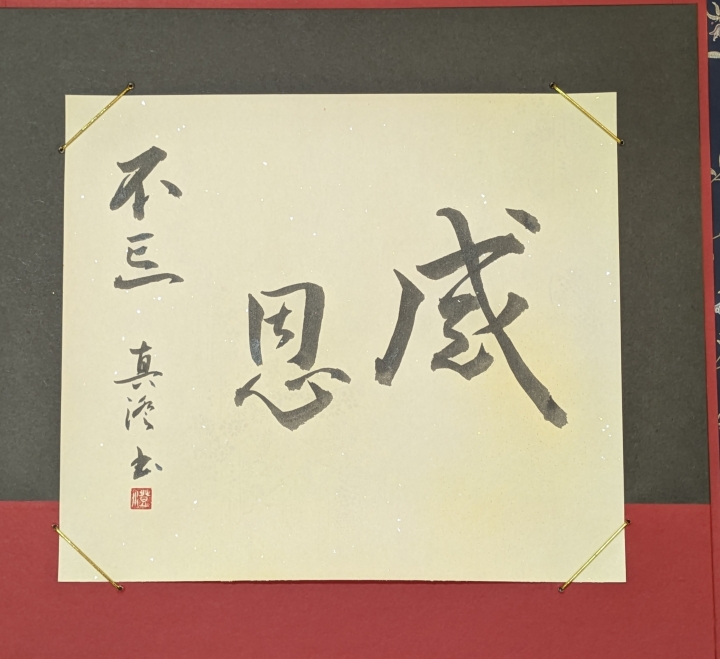 感恩
不忘 真澄書